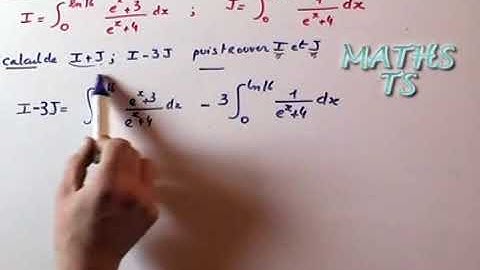 I = ∫₀^{ln16} (eˣ+3)/(eˣ+4) dx ; J = ∫₀^{ln16} 1/(eˣ+4) dx
calcul de I+J ; I-3J puis trouver I et J
MATHS
TS
I-3J = ∫₀ (eˣ+3)/(eˣ+4) dx - 3∫₀^{ln16} 1/(eˣ+4) dx